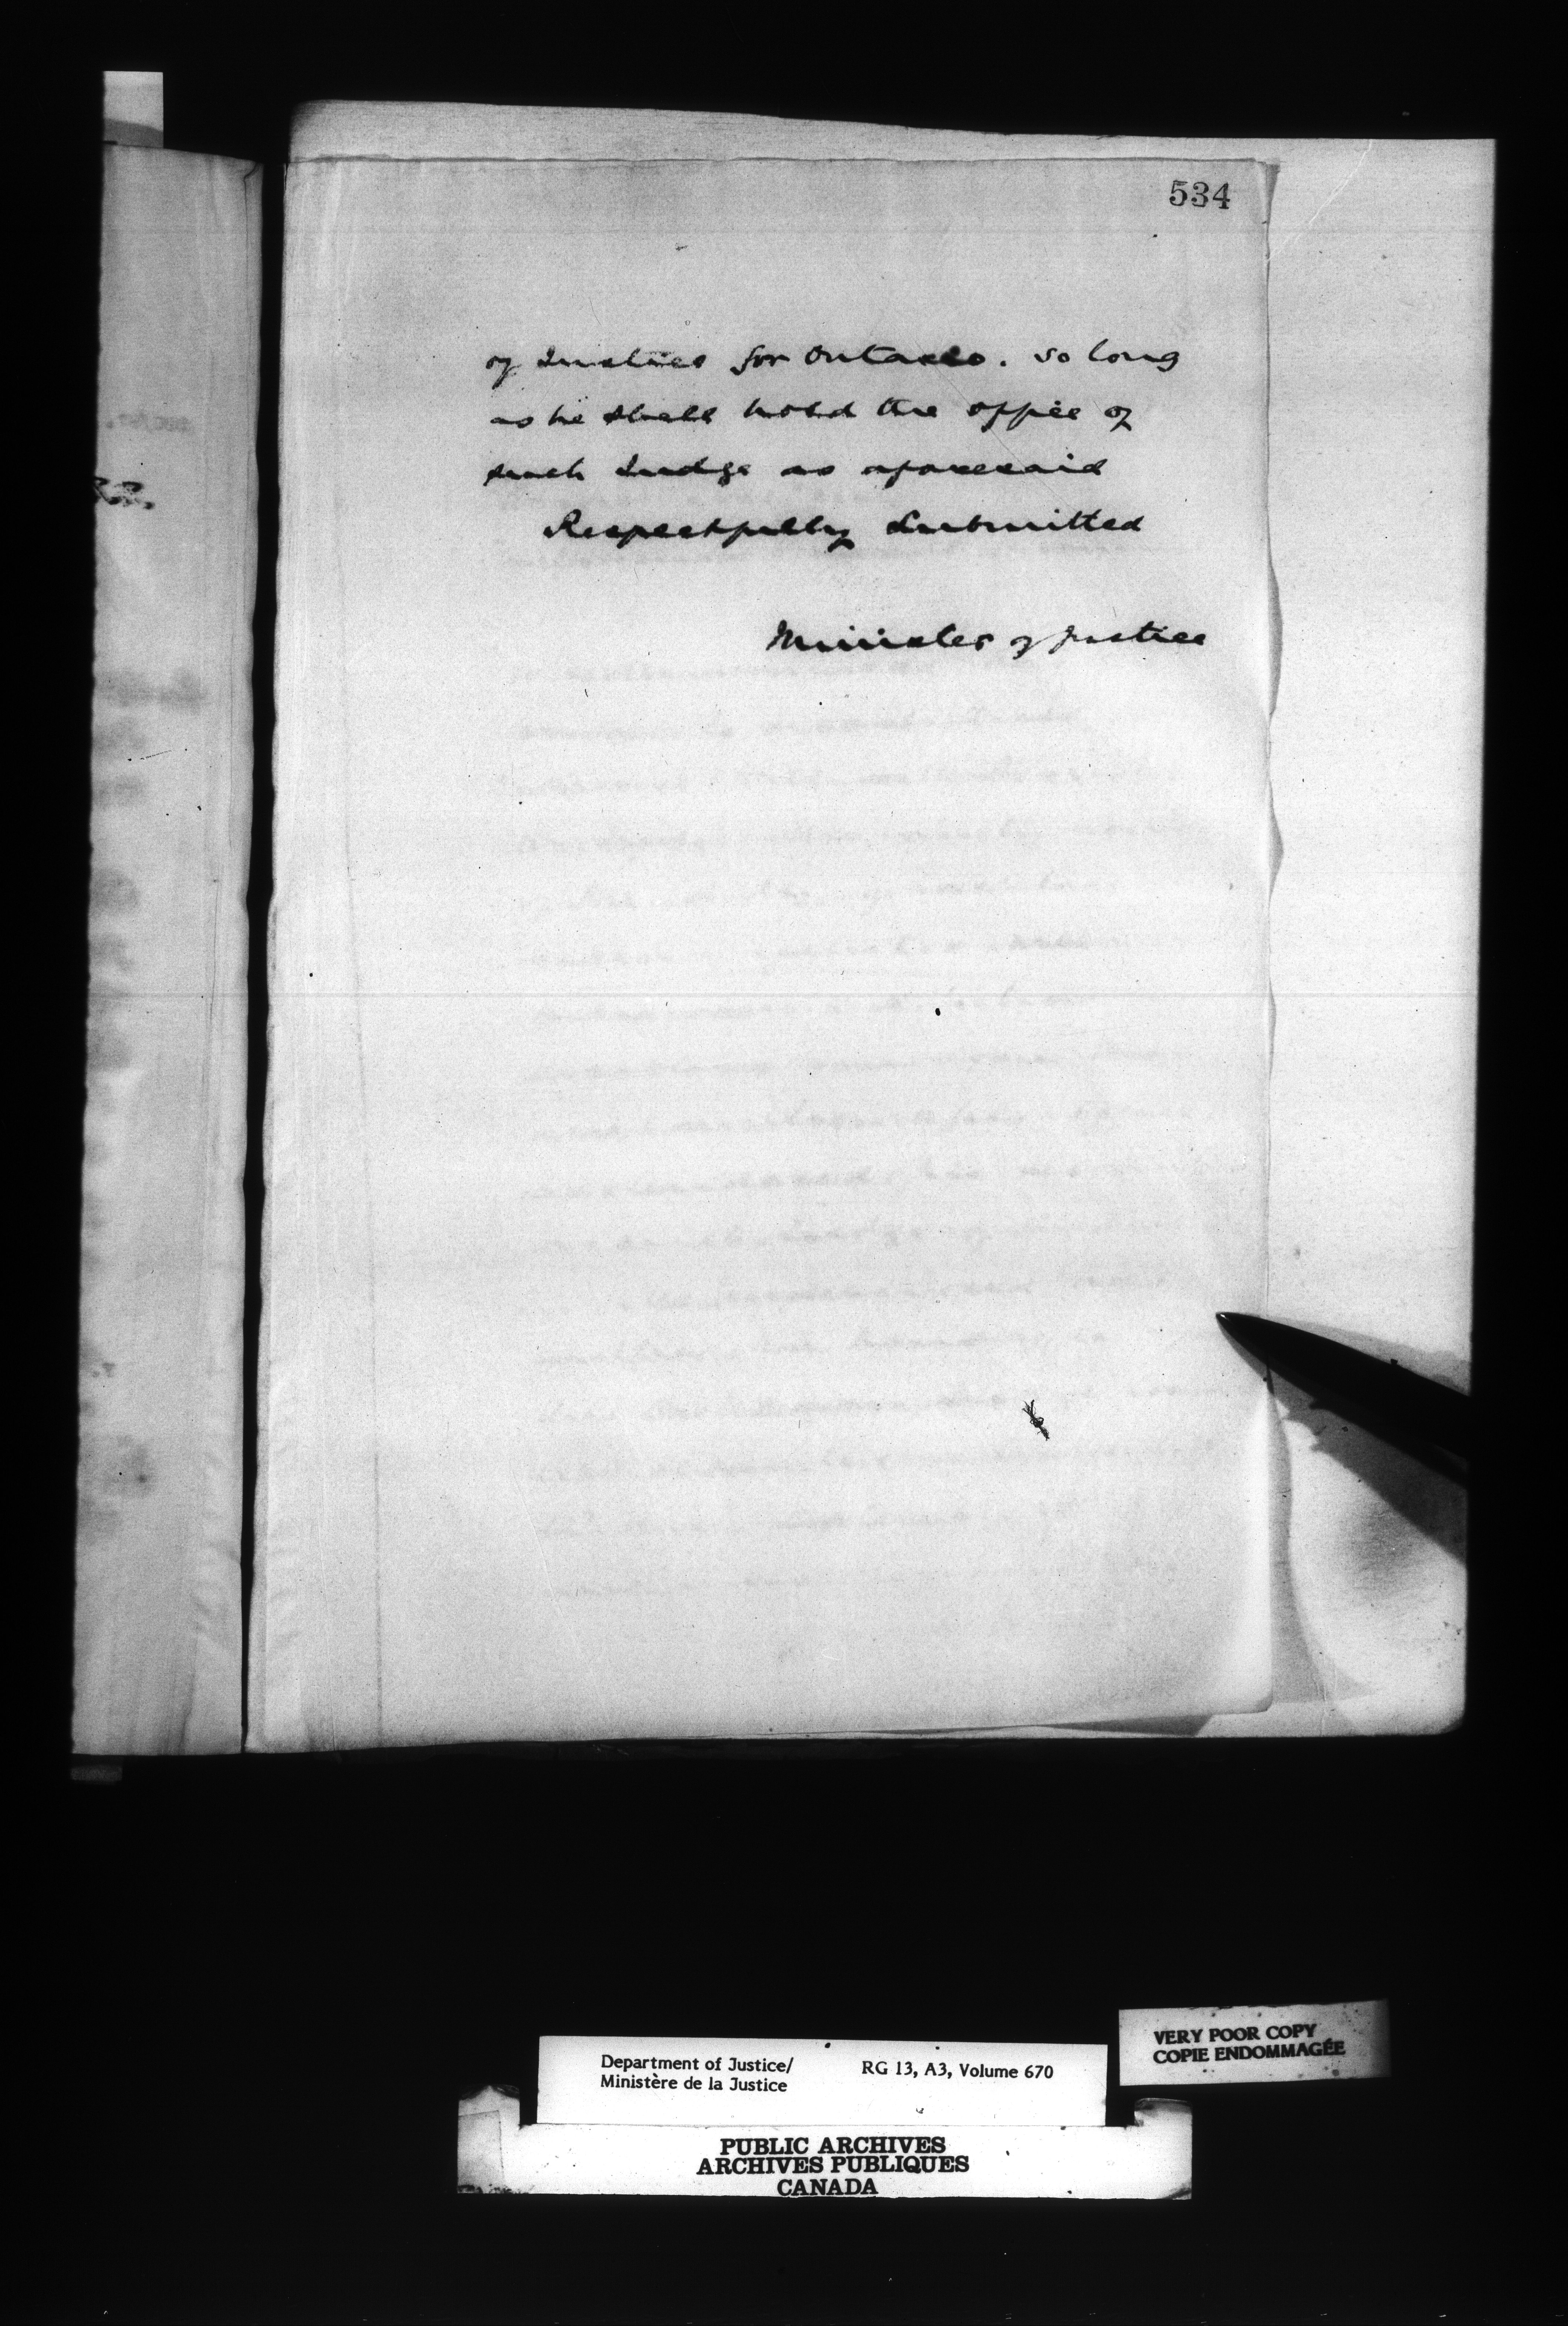 534
of Justice for Ontario. So long
as he shall hold the office of
such Judge as aforesaid
Respectfully Submitted
Minister of Justice
Department of Justice/
Ministère de la Justice
RG 13, A3, Volume 670
VERY POOR COPY
COPIE ENDOMMAGÉE
PUBLIC ARCHIVES
ARCHIVES PUBLIQUES
CANADA